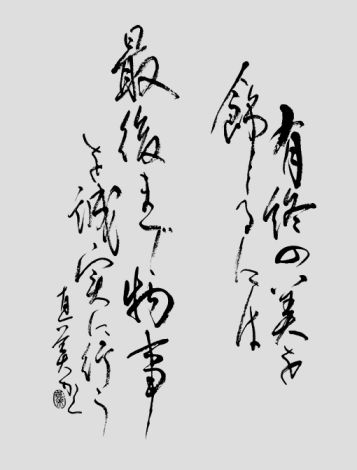 有終の美を
飾るには
最後まで物事
を誠実に行う
直美書